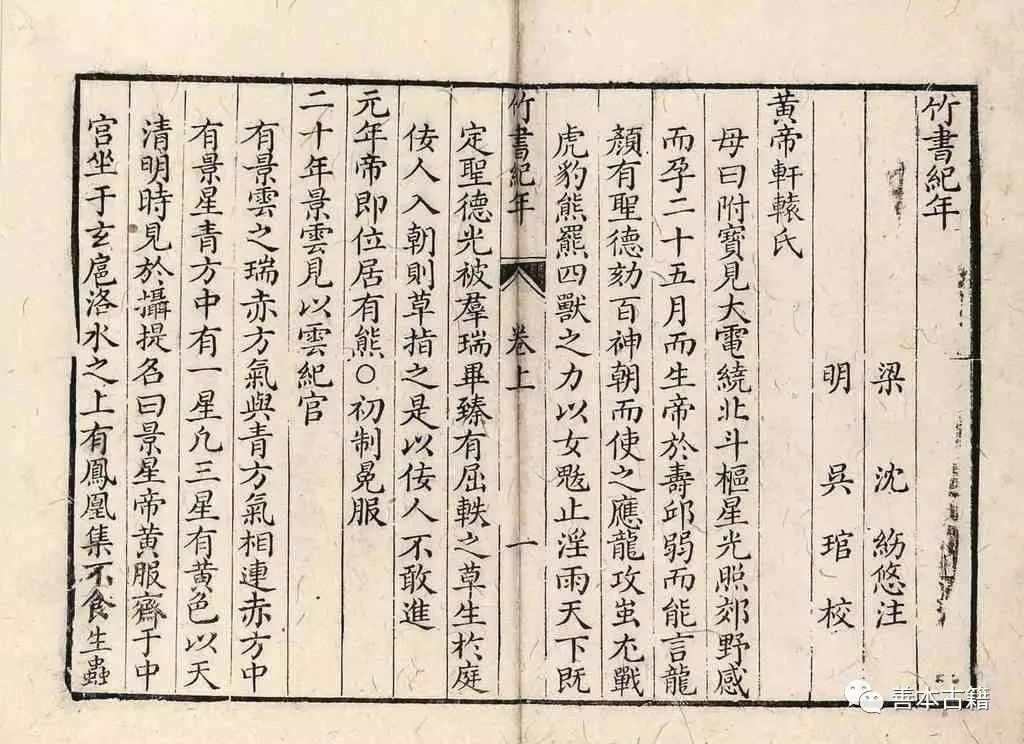 竹書紀年
梁 沈 約 悠 注
明 吳 琯 校
黄帝軒轅氏
母曰附寶見大電繞北斗樞星光照郊野感
而孕二十五月而生帝於壽邱弱而能言龍
顏有聖德劾百神朝而使之應龍攻蚩尤戰
虎豹熊羆四獸之力以女魃止淫雨天下既
竹書紀年 卷上 一
定聖德光被羣瑞畢臻有屈軼之草生於庭
佞人入朝則草指之是以佞人不敢進
元年帝即位居有熊○初制冕服
二十年景雲見以雲紀官
有景雲之瑞赤方氣與青方氣相連赤方中
有景星青方中有一星凡三星有黃色以天
清明時見於攝提名曰景星帝黄服齋于中
宫坐于玄扈洛水之上有鳳凰集不食生蟲
善本古籍